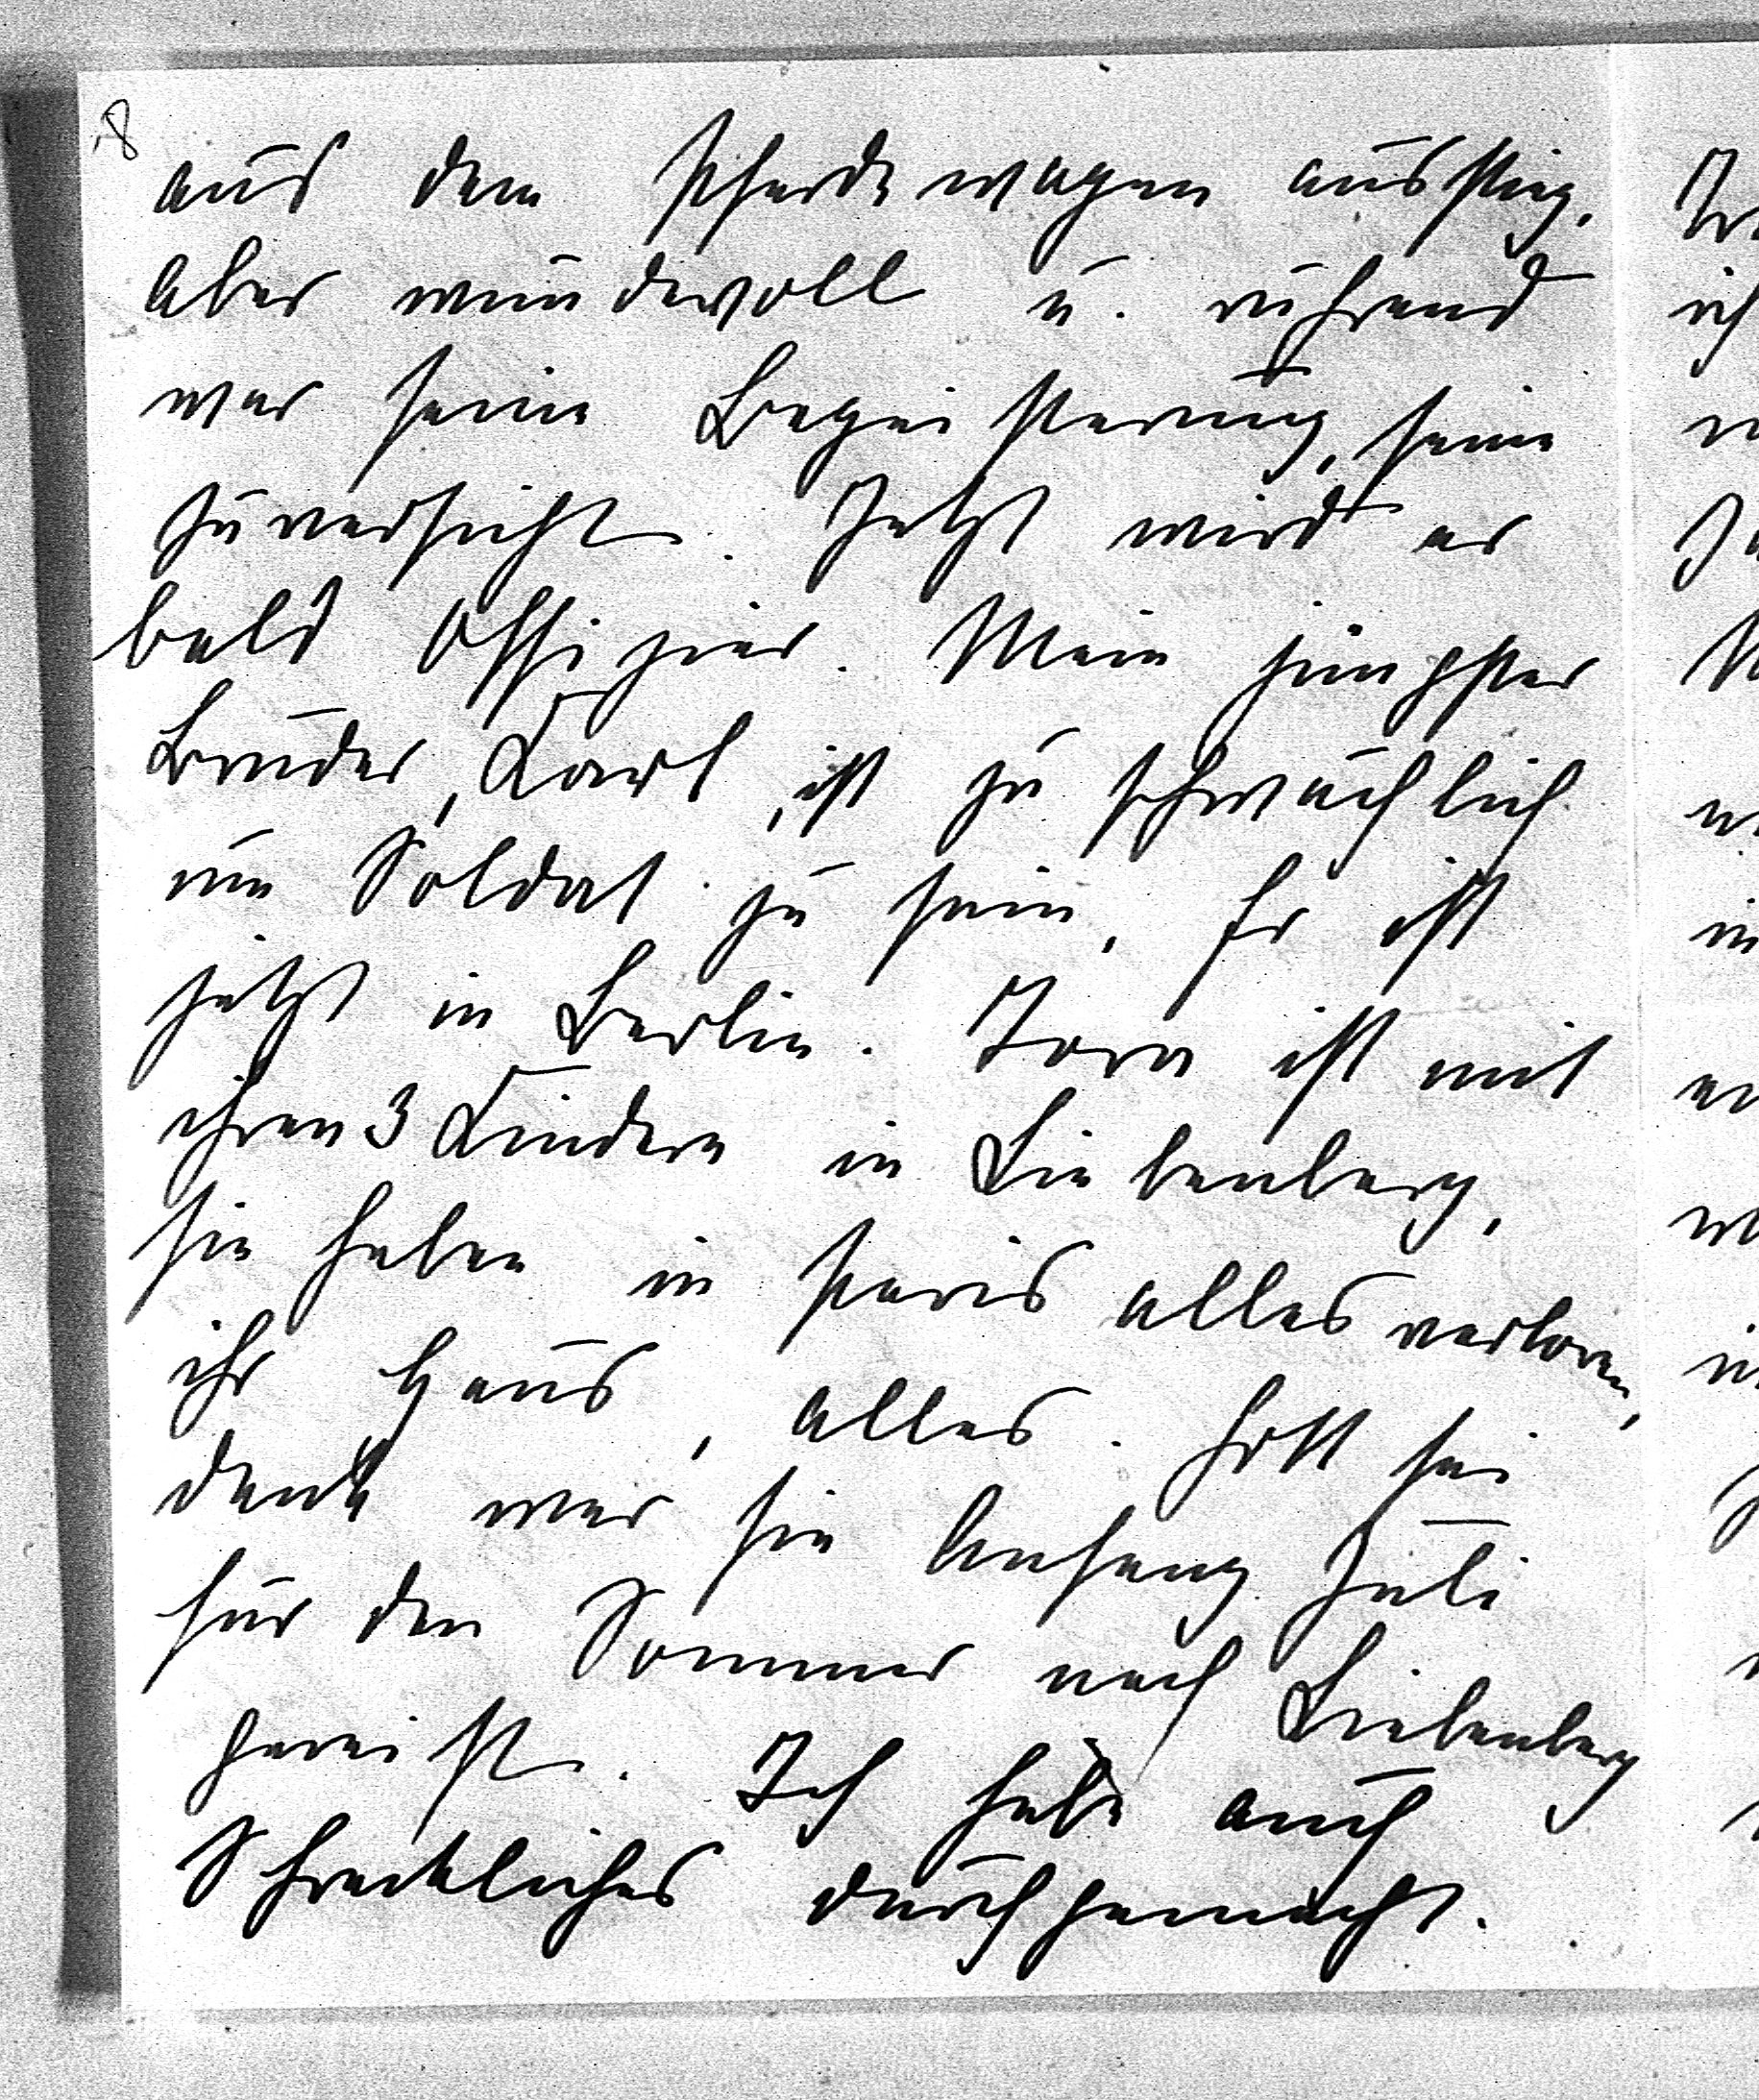 8
aus dem Pferdewagen ausstieg,
aber wundervoll u. rührend
war seine Begeisterung, seine
Zuversicht. Jetzt wird er
bald Offizier. Mein jüngster
Bruder, Karl, ist zu schwächlich
um Soldat zu sein, Er ist
jetzt in Berlin. Tora ist mit
ihren 3 Kindern in Liebenberg,
sie haben in Paris alles verloren,
ihr Haus, alles. Gott sei
dank war sie Anfang Juli
für den Sommer nach Liebenberg
gereist. Ich habe auch
Schreckliches durchgemacht.